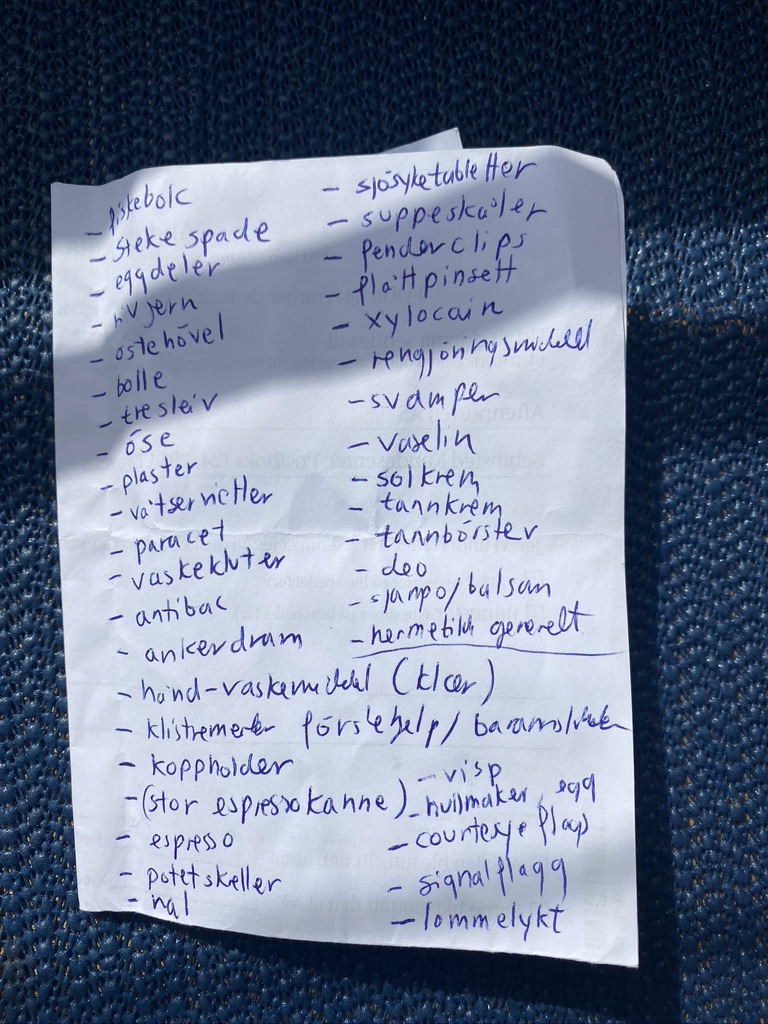 - fiskebolc
- steke spade
- eggdeler
- rivjern
- ostehövel
- bolle
- tresleiv
- öse
- plaster
- våtservietter
- paracet
- vaskekluter
- antibac
- ankerdram
- sjösyketabletter
- suppeskåler
- Penderclips
- flått pinsett
- xylocain
- rengjöringsmiddel
- svamper
- vaselin
- solkrem
- tannkrem
- tannbörster
- deo
- sjampo/balsam
- hermetikk generelt
- hånd-vaskemiddel (klær)
- klistremerker förstehjelp/
- koppholder
- (stor espressokanne)
- espresso
- potetskeller
- nål
- visp
- hullmaker, egg
- courtesye flagg
- signalflagg
- lommelykt